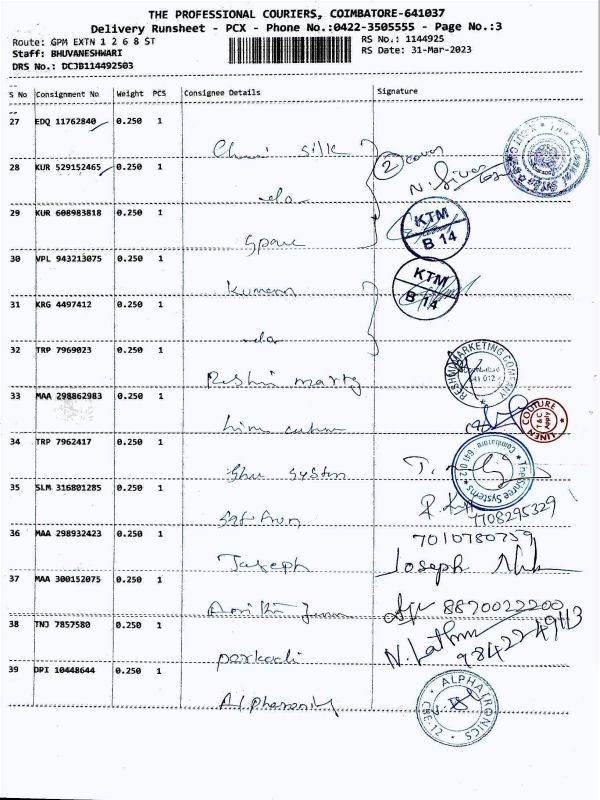 THE PROFESSIONAL COURIERS, COIMBATORE-641037
Delivery Runsheet - PCX - Phone No.:0422-3505555 - Page No.:3
Route: GPM EXTN 1 2 6 8 ST
RS No.: 1144925
Staff: BHUVANESHWARI
RS Date: 31-Mar-2023
DRS No.: DCJB114492503
S No Consignment No Weight PCS Consignee Details Signature
27 EDQ 11762840 0.250 1
silk
2 cover
28 KUR 529152465 0.250 1
do
N. Siva
29 KUR 608983818 0.250 1
KTM
B 14
30 VPL 943213075 0.250 1
Kumaran
KTM
B 14
31 KRG 4497412 0.250 1
do
32 TRP 7969023 0.250 1
Reshmi
RESHMI MARKETING COMPANY
COIMBATORE
641 012
33 MAA 298862983 0.250 1
COUTURE
LINEN
34 TRP 7962417 0.250 1
Shree System
The Shree Systems
Coimbatore - 641 012
35 SLM 316801285 0.250 1
7708295329
36 MAA 298932423 0.250 1
7010780759
Joseph
Joseph
37 MAA 300152075 0.250 1
8870022200
38 TNJ 7857580 0.250 1
porkodi
N. Latha
9842249113
39 DPI 10448644 0.250 1
ALPHATRONICS
CBE-12